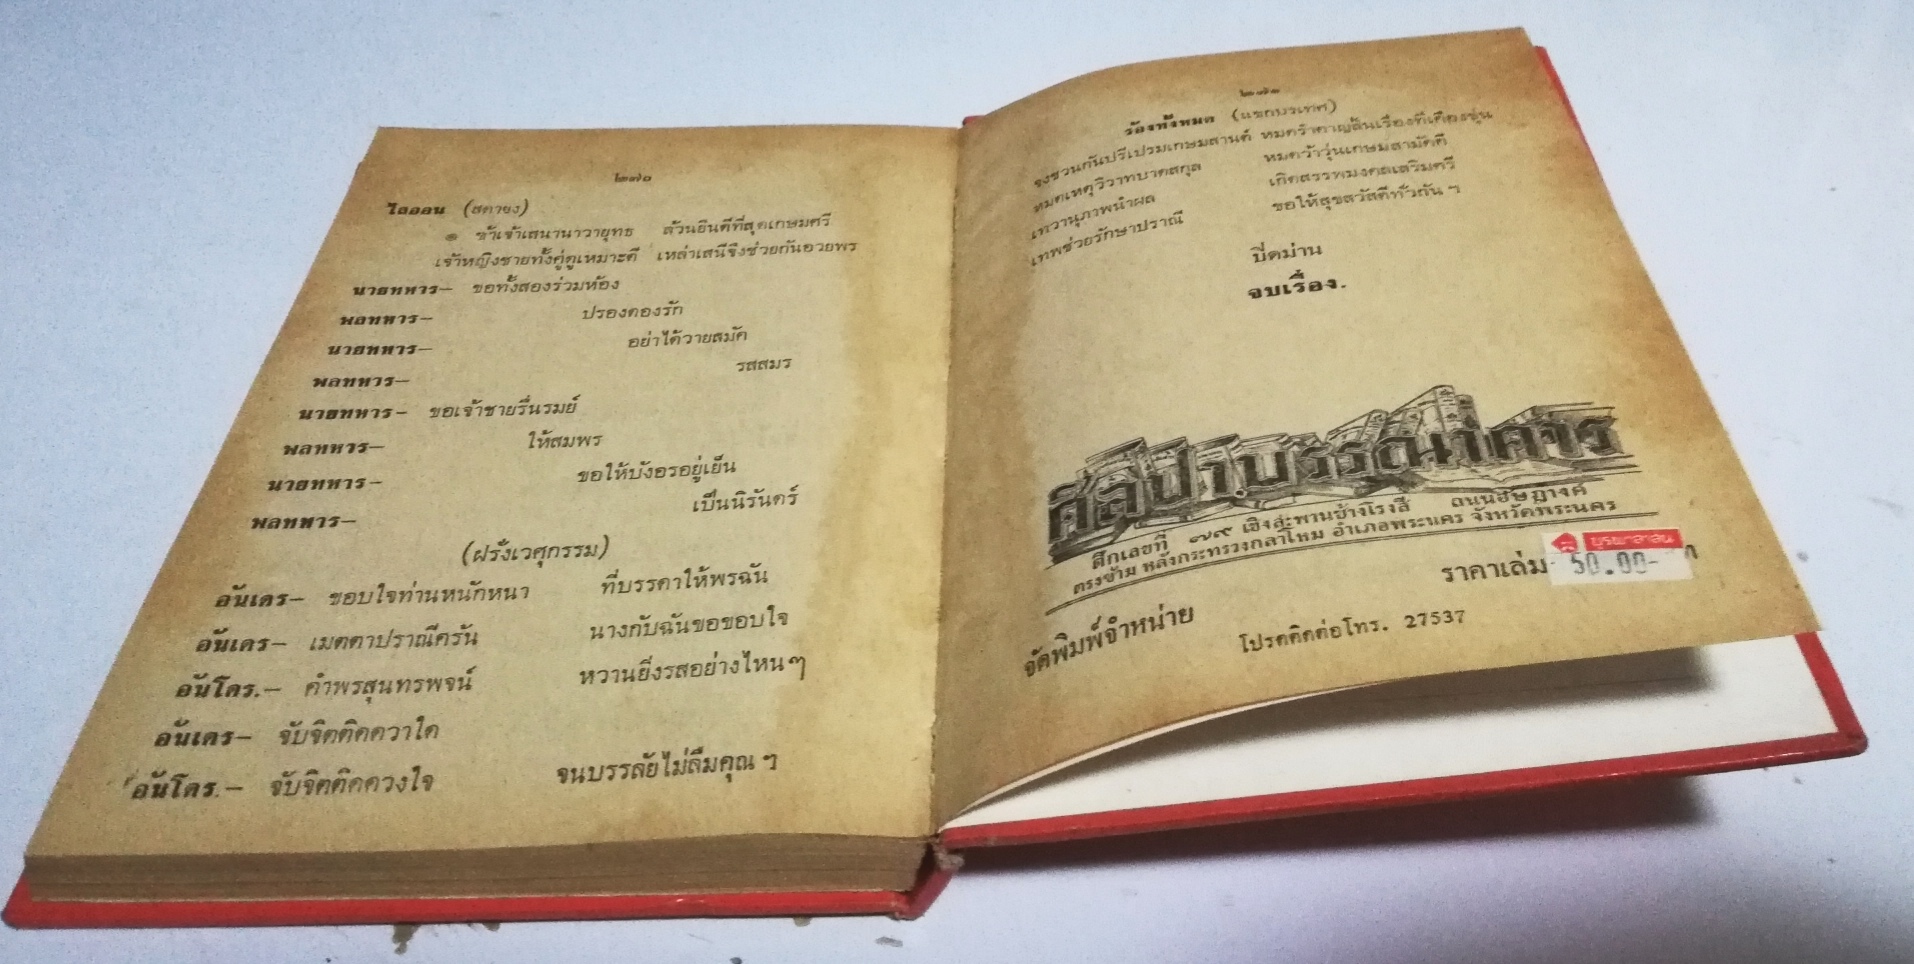 ๒๗๐
ไลออน (สดายง)
๑ ข้าเจ้าเสนานาวายุทธ ล้วนยินดีที่สุดเกษมศรี
เจ้าหญิงชายทั้งคู่ดูเหมาะดี เหล่าเสนีจึงช่วยกันอวยพร
นายทหาร— ขอทั้งสองร่วมห้อง
พลทหาร— ปรองดองรัก
นายทหาร— อย่าได้วายสมัค
พลทหาร— รสสมร
นายทหาร— ขอเจ้าชายรื่นรมย์
พลทหาร— ให้สมพร
นายทหาร— ขอให้บังอรอยู่เย็น
พลทหาร— เป็นนิรันดร์
(ฝรั่งเวศุกรรม)
อันเดร— ขอบใจท่านหนักหนา ที่บรรดาให้พรฉัน
อันเดร— เมตตาปราณีครัน นางกับฉันขอขอบใจ
อันโดร.— คำพรสุนทรพจน์ หวานยิ่งรสอย่างไหน ๆ
อันเดร— จับจิตติดดวาใด
อันโดร.— จับจิตติดดวงใจ จนบรรลัยไม่ลืมคุณ ๆ
๒๗๑
ร้องทั้งหมด (แขกบรเทศ)
จงชวนกันปรีเปรมเกษมสานต์ หมดรำคาญสิ้นเรื่องที่เคืองขุ่น
หมดเหตุวิวาทบาดสกุล หมดว้าวุ่นเกษมสามัคคี
เทวานุภาพนำผล เกิดสรรพมงคลเสริมศรี
เทพช่วยรักษาปราณี ขอให้สุขสวัสดีทั่วกัน ๆ
ปิดม่าน
จบเรื่อง.
ศิลปาบรรณาคาร
ตึกเลขที่ ๗๙ เชิงสะพานช้างโรงสี ถนนอัษฎางค์
ตรงข้าม หลังกระทรวงกลาโหม อำเภอพระนคร จังหวัดพระนคร
บูรพาสาส์น
ราคาเล่ม 50.00-
จัดพิมพ์จำหน่าย
โปรดติดต่อโทร. 27537